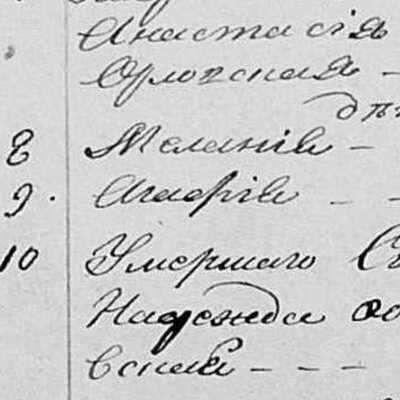 Анастасія
Орловская -
дѣ
8 Меланія -
9. Агафія - -
10 Умершаго С
Надежда
вская - - -